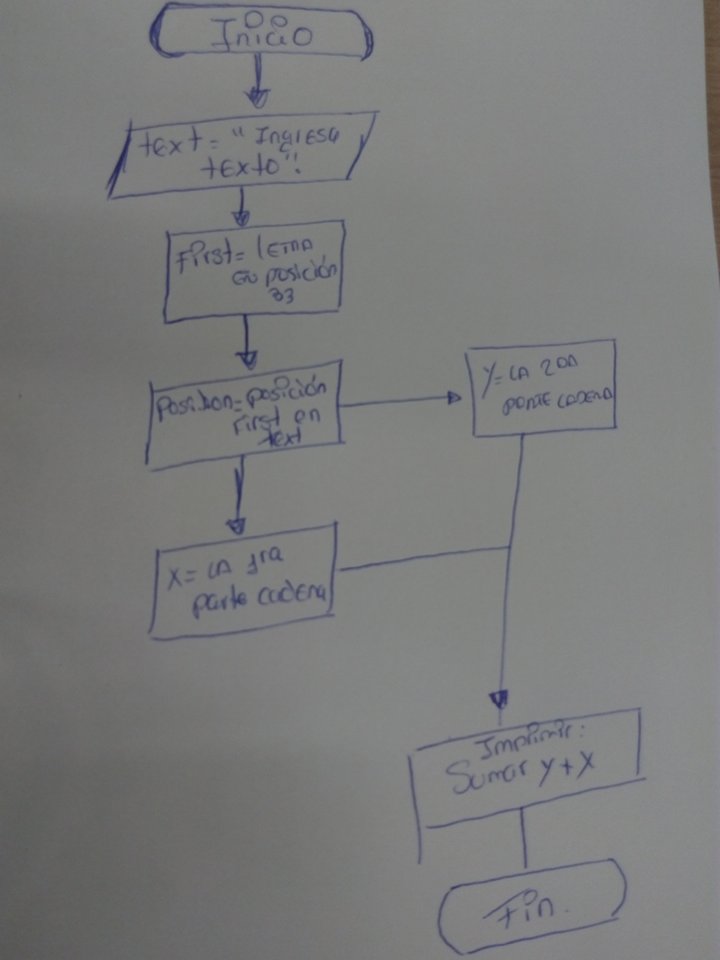 Inicio
text = "Ingresa
texto"!
First = letra
en posición
33
Position = posición
First en
text
Y = LA 2DA
PARTE CADENA
X = LA 1ra
parte cadena
Imprimir:
Sumar Y + X
Fin.